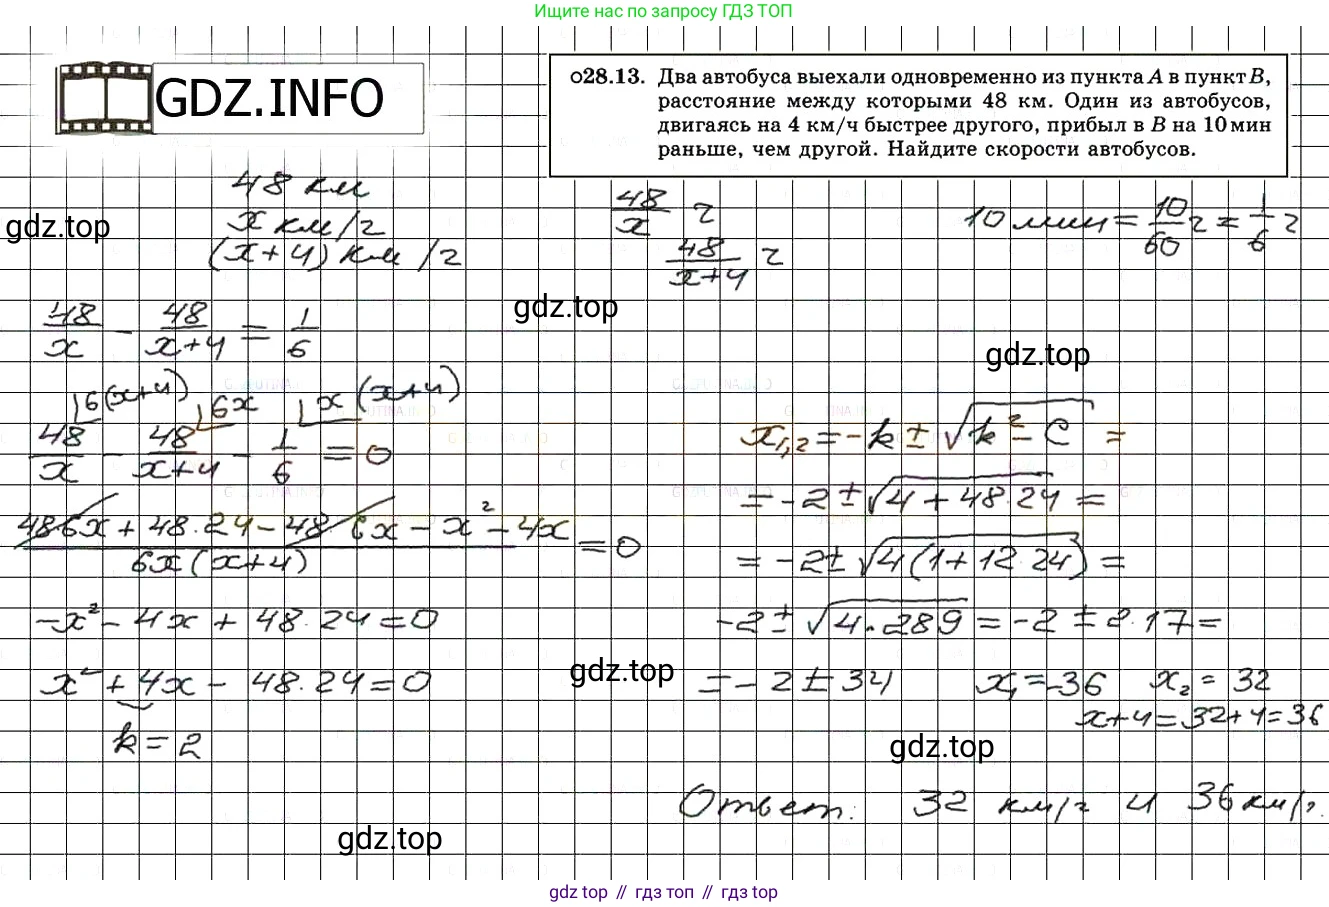 Ищите нас по запросу ГДЗ ТОП
GDZ.INFO
○28.13. Два автобуса выехали одновременно из пункта A в пункт B,
расстояние между которыми 48 км. Один из автобусов,
двигаясь на 4 км/ч быстрее другого, прибыл в B на 10 мин
раньше, чем другой. Найдите скорости автобусов.
48 км
x км/ч
(x+4) км/ч
48/x ч
48/(x+4) ч
10 мин = 10/60 ч = 1/6 ч
gdz.top
gdz.top
48/x - 48/(x+4) = 1/6
gdz.top
6(x+4) 6x x(x+4)
48/x - 48/(x+4) - 1/6 = 0
(48·6x + 48·24 - 48·6x - x² - 4x)/(6x(x+4)) = 0
-x² - 4x + 48·24 = 0
x² + 4x - 48·24 = 0
k = 2
x₁,₂ = -k ± √(k² - C) =
= -2 ± √(4 + 48·24) =
= -2 ± √(4(1+12·24)) =
-2 ± √(4·289) = -2 ± 2·17 =
gdz.top
= -2 ± 34 x₁ = -36 x₂ = 32
x+4 = 32+4 = 36
gdz.top
Ответ: 32 км/ч и 36 км/ч.
gdz.top
gdz top // гдз топ // гдз top